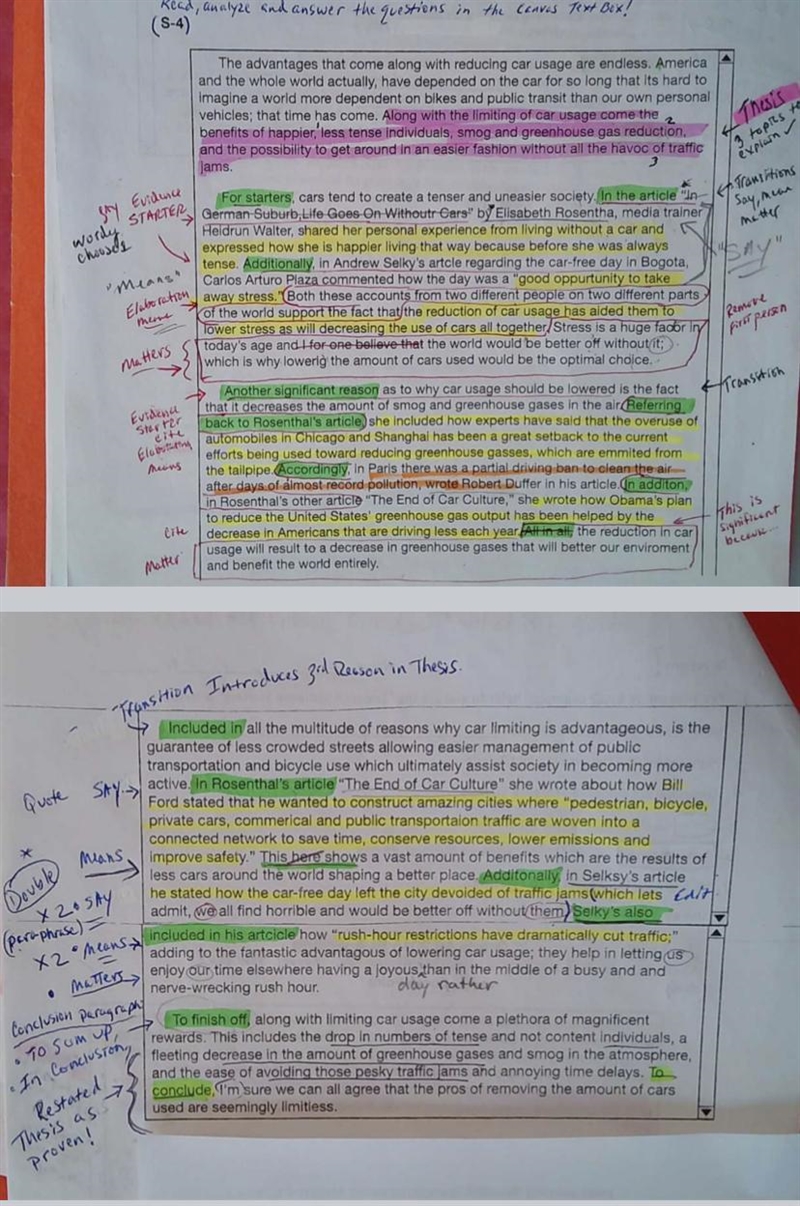 Read, analyze and answer the questions in the Canvas Text Box!
(S-4)
The advantages that come along with reducing car usage are endless. America
and the whole world actually, have depended on the car for so long that its hard to
imagine a world more dependent on bikes and public transit than our own personal
vehicles; that time has come. Along with the limiting of car usage come the
benefits of happier, less tense individuals, smog and greenhouse gas reduction,
and the possibility to get around in an easier fashion without all the havoc of traffic
jams.
1
2
3
Thesis
3 topics to
explain ✓
For starters, cars tend to create a tenser and uneasier society. In the article "In
German Suburb,Life Goes On Withoutr Cars" by Elisabeth Rosentha, media trainer
Heidrun Walter, shared her personal experience from living without a car and
expressed how she is happier living that way because before she was always
tense. Additionally, in Andrew Selky's artcle regarding the car-free day in Bogota,
Carlos Arturo Plaza commented how the day was a "good oppurtunity to take
away stress." Both these accounts from two different people on two different parts
of the world support the fact that the reduction of car usage has aided them to
lower stress as will decreasing the use of cars all together. Stress is a huge facor in
today's age and I for one believe that the world would be better off without it;
which is why lowerig the amount of cars used would be the optimal choice.
Transitions
Say, mean
matter
"SAY"
Remove
first person
say Evidence
STARTER
wordy
"Means"
Elaboration
means
Matters
Another significant reason as to why car usage should be lowered is the fact
that it decreases the amount of smog and greenhouse gases in the air. Referring
back to Rosenthal's article, she included how experts have said that the overuse of
automobiles in Chicago and Shanghai has been a great setback to the current
efforts being used toward reducing greenhouse gasses, which are emmited from
the tailpipe. Accordingly, in Paris there was a partial driving ban to clean the air
after days of almost record pollution, wrote Robert Duffer in his article. In additon,
in Rosenthal's other article "The End of Car Culture," she wrote how Obama's plan
to reduce the United States' greenhouse gas output has been helped by the
decrease in Americans that are driving less each year. All in all, the reduction in car
usage will result to a decrease in greenhouse gases that will better our enviroment
and benefit the world entirely.
Transition
This is
significant
because...
Evidence
starter
cite
Elaborating
means
cite
Matter
Transition Introduces 3rd Reason in Thesis.
Included in all the multitude of reasons why car limiting is advantageous, is the
guarantee of less crowded streets allowing easier management of public
transportation and bicycle use which ultimately assist society in becoming more
active. In Rosenthal's article "The End of Car Culture" she wrote about how Bill
Ford stated that he wanted to construct amazing cities where "pedestrian, bicycle,
private cars, commerical and public transportaion traffic are woven into a
connected network to save time, conserve resources, lower emissions and
improve safety." This here shows a vast amount of benefits which are the results of
less cars around the world shaping a better place. Additonally, in Selksy's article
he stated how the car-free day left the city devoided of traffic jams (which lets
admit, we all find horrible and would be better off without them.) Selky's also
included in his artcicle how "rush-hour restrictions have dramatically cut traffic;"
adding to the fantastic advantagous of lowering car usage; they help in letting us
enjoy our time elsewhere having a joyous than in the middle of a busy and and
nerve-wrecking rush hour.
day rather
Edit
Quote SAY
Means
*
Double
x 2 • SAY
(paraphrase)
x 2 • Means
• Matters
To finish off, along with limiting car usage come a plethora of magnificent
rewards. This includes the drop in numbers of tense and not content individuals, a
fleeting decrease in the amount of greenhouse gases and smog in the atmosphere,
and the ease of avoiding those pesky traffic jams and annoying time delays. To
conclude, I'm sure we can all agree that the pros of removing the amount of cars
used are seemingly limitless.
Conclusion paragraph
• To sum up,
• In Conclusion,
Restated
Thesis as
proven!